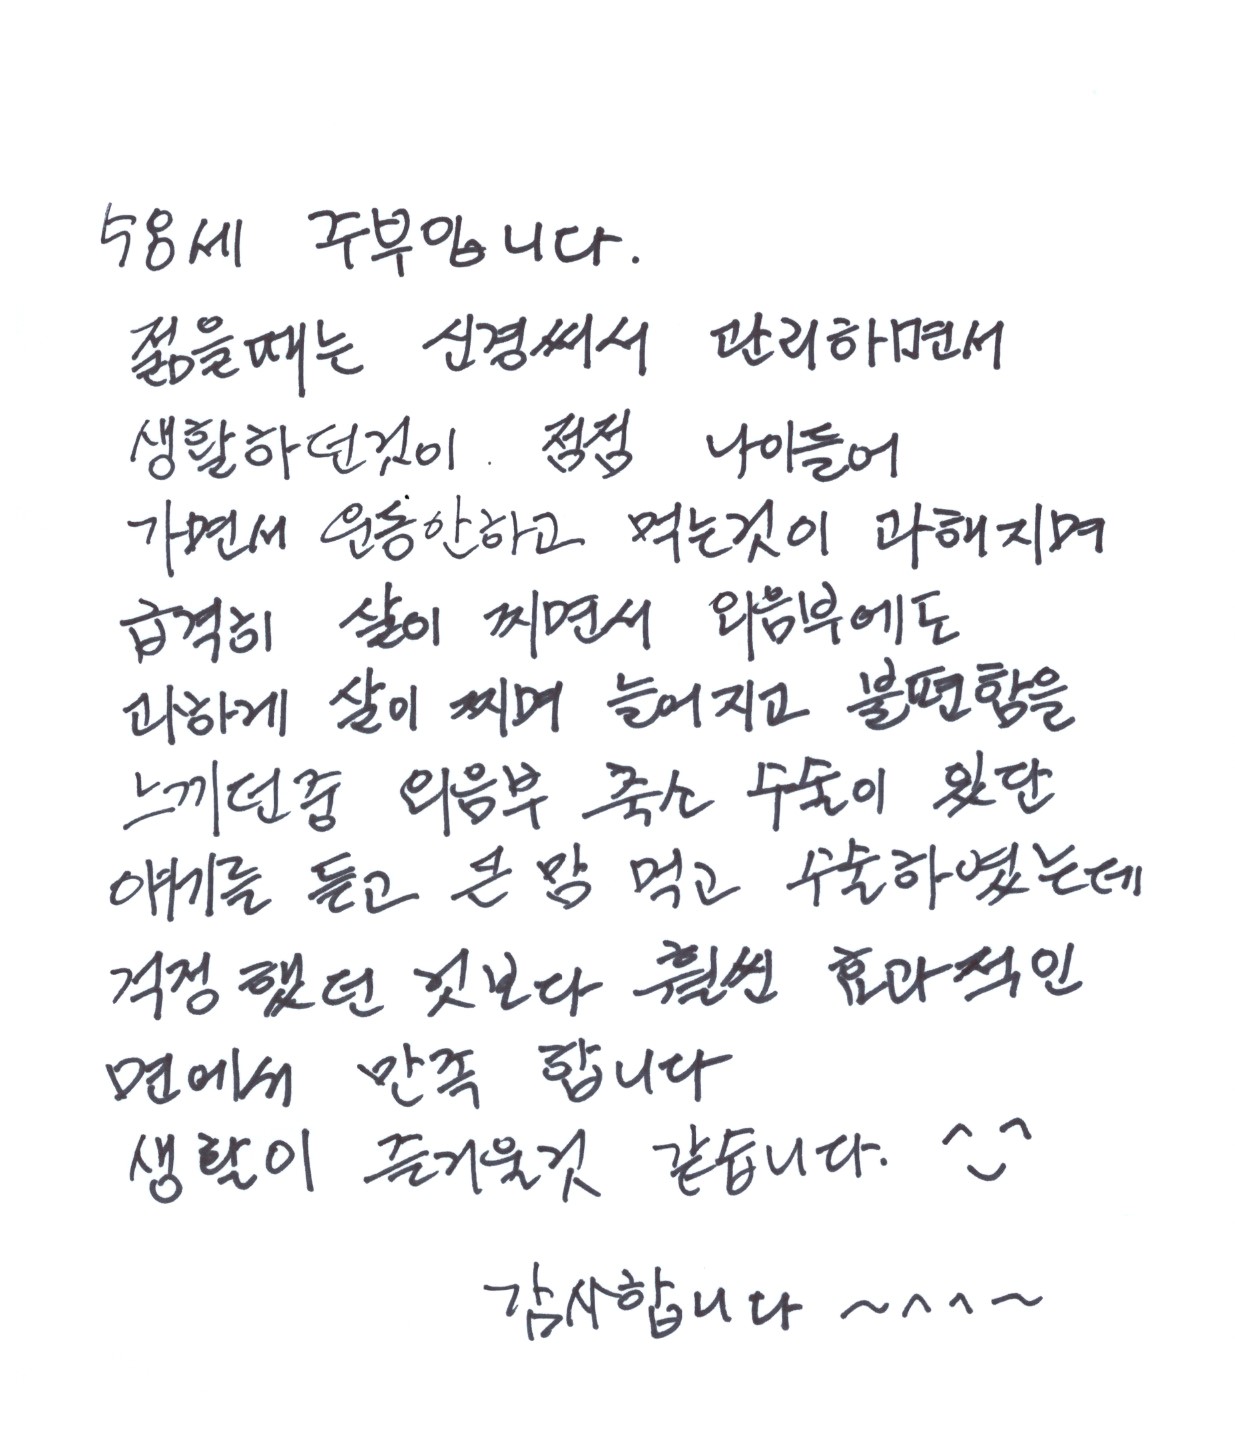 58세 주부입니다.
젊을때는 신경써서 관리하면서
생활하던것이 점점 나이들어
가면서 운동안하고 먹는것이 과해지며
급격히 살이 찌면서 외음부에도
과하게 살이 찌며 늘어지고 불편함을
느끼던중 외음부 축소 수술이 있단
얘기를 듣고 큰 맘 먹고 수술하였는데
걱정했던 것보다 훨씬 효과적인
면에서 만족 합니다
생활이 즐거울것 같습니다. ^‿^
감사합니다 ~^^~